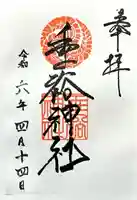 奉拝
垂裕神社
令和六年四月十四日